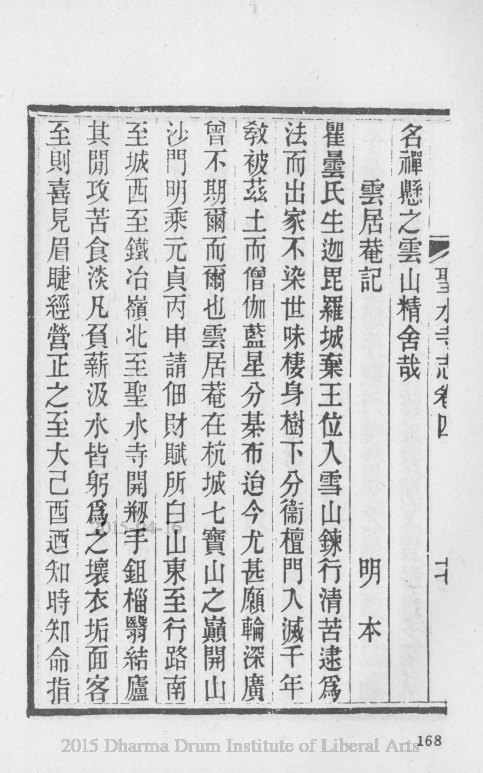 聖水寺志卷四
名禪懸之雲山精舍哉
雲居菴記 明本
瞿曇氏生迦毘羅城棄王位入雪山鍊行清苦逮爲
法而出家不染世味棲身樹下分衞檀門入滅千年
敎被茲土而僧伽藍星分棊布迨今尤甚願輪深廣
曾不期爾而爾也雲居菴在杭城七寶山之巓開山
沙門明乘元貞丙申請佃財賦所白山東至行路南
至城西至鐵冶嶺北至聖水寺開剏手鉏櫾翳結廬
其閒攻苦食淡凡負薪汲水皆躬爲之壞衣垢面客
至則喜見眉睫經營正之至大己酉迺知時知命指
168
2015 Dharma Drum Institute of Liberal Arts